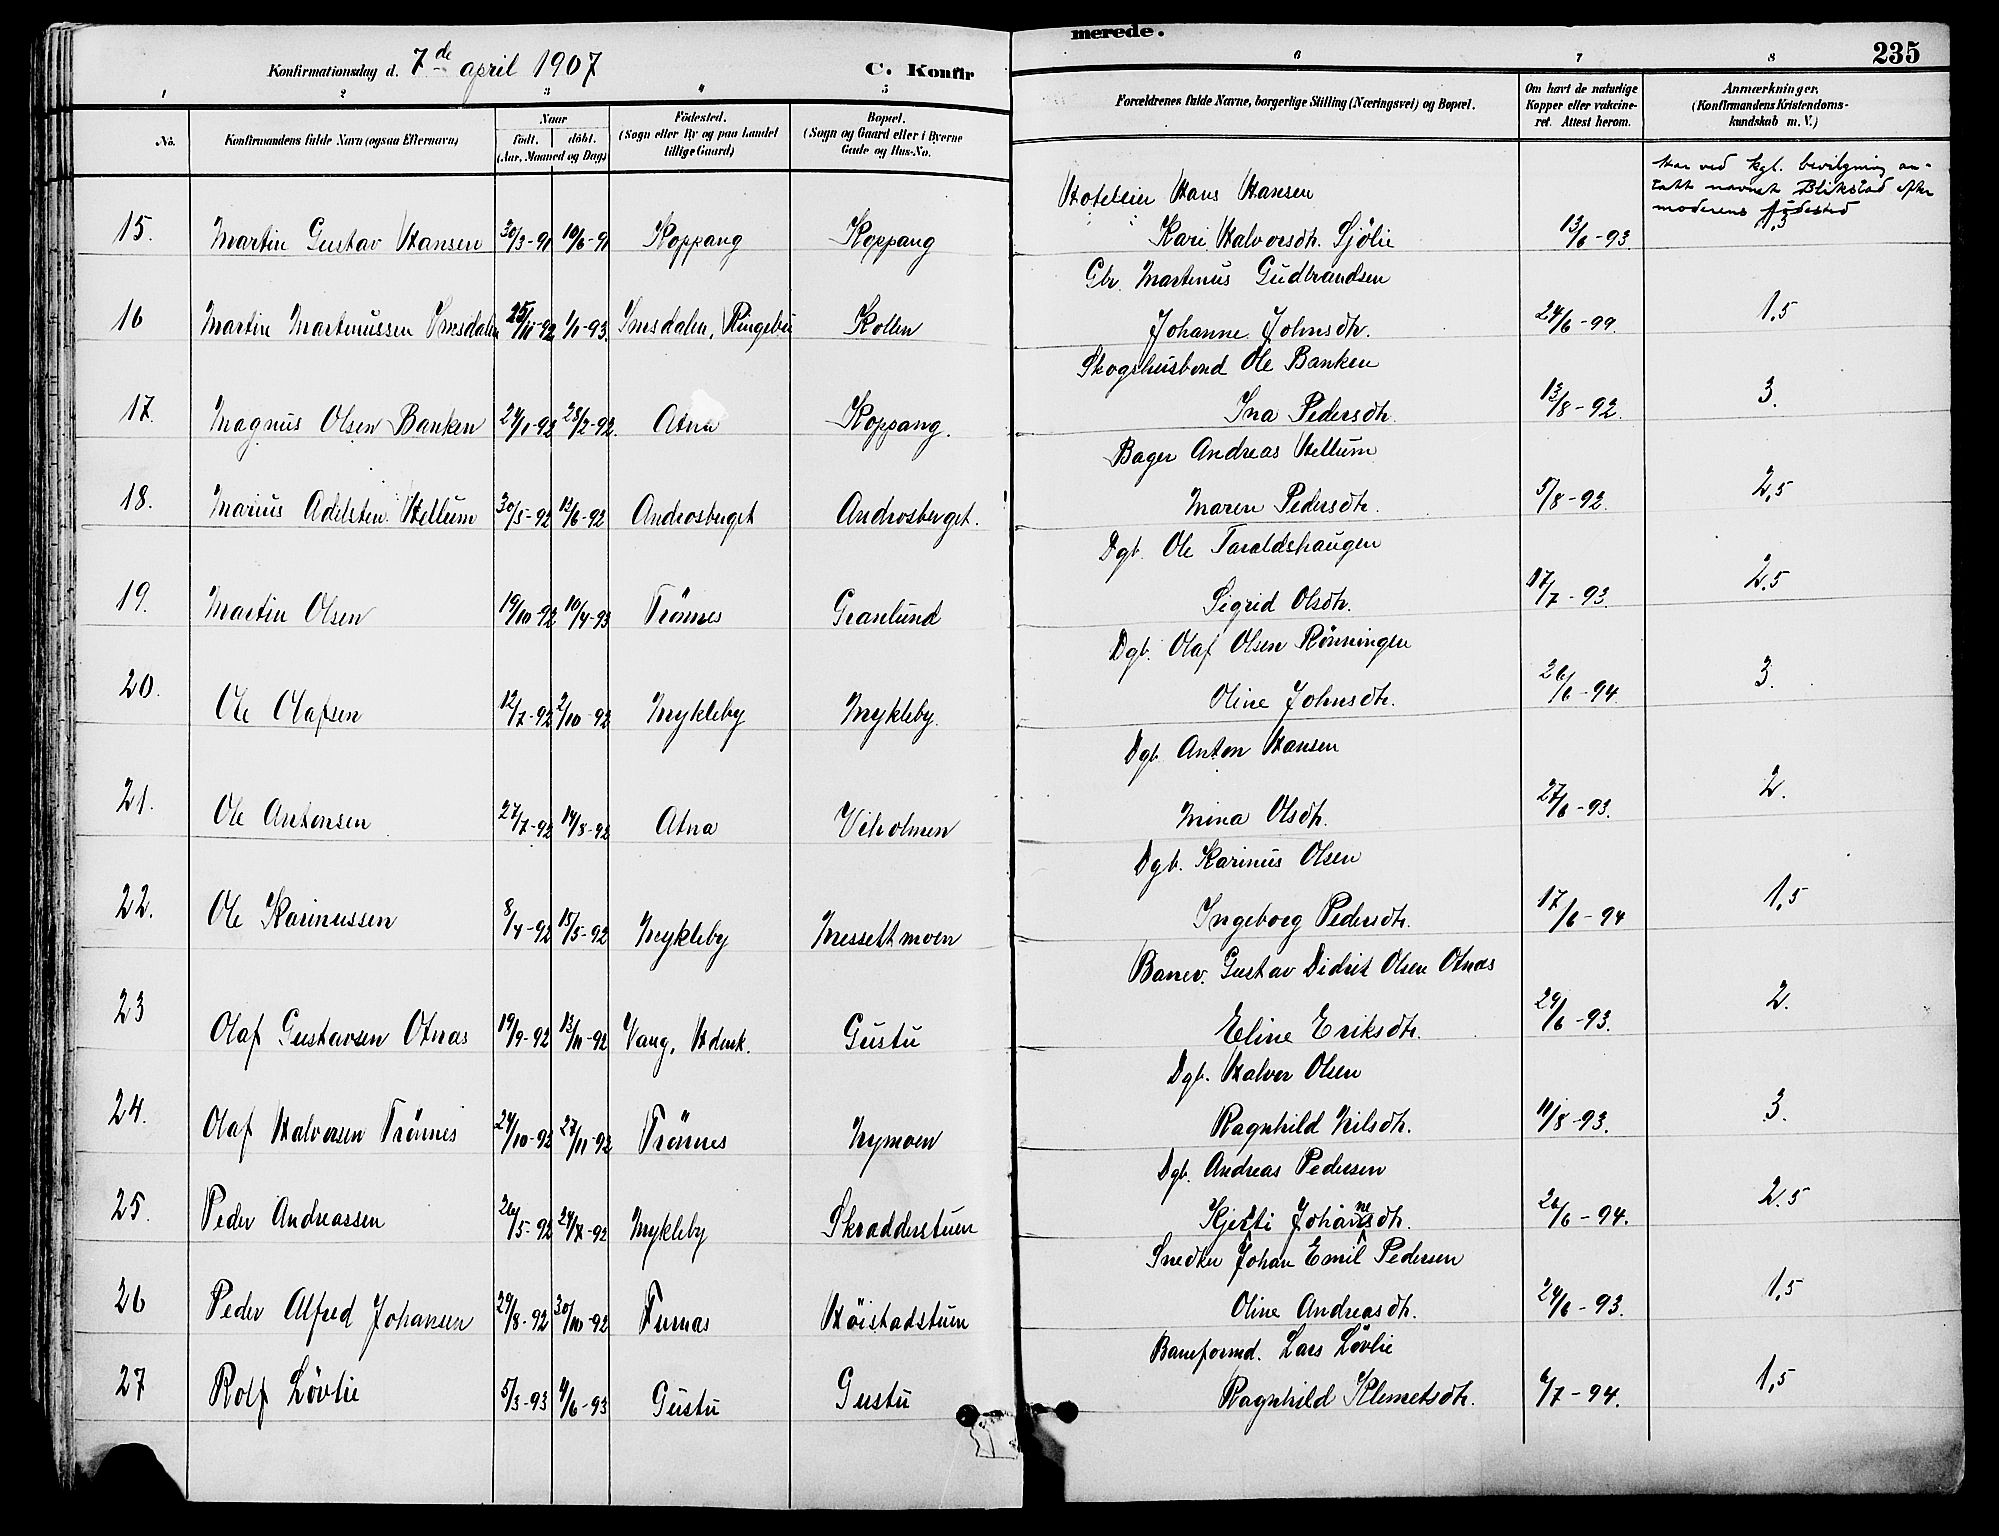 Konfirmationsdag d. 7de april 1907
C. Konfir
merede.
235
1 2 3 4 5 6 7 8
No.
Konfirmandens fulde Navn (ogsaa Efternavn)
Naar
født. døbt.
(Aar, Maaned og Dag)
Fødested.
(Sogn eller By og paa Landet
tillige Gaard)
Bopæl.
(Sogn og Gaard eller i Byerne
Gade og Hus-No.
Forældrenes fulde Navne, borgerlige Stilling (Næringsvei) og Bopæl.
Om havt de naturlige
Kopper eller vakcine-
ret. Attest herom.
Anmærkninger,
(Konfirmandens Kristendoms-
kundskab m. V.)
Har ved kgl. bevilgning an-
tatt navnet Blikstad efter
moderens fødested
Hoteleier Hans Hansen
15. Martin Gustav Hansen 30/3-91 10/6-91 Koppang Koppang Kari Halvorsdtr. Sjölie 13/6-93 1,3
Gbr. Martinus Gudbrandsen
16 Martin Martinussen Imsdalen 25/11-92 1/1-93. Imsdalen, Ringebu Kollen Johanne Johnsdtr. 24/6-99 1,5
Skogshusbond Ole Banken
17. Magnus Olsen Banken 24/1-92 28/2-92. Atna Koppang. Ina Pedersdtr. 13/8-92. 3.
Bager Andreas Hellum
18. Marius Adelsten Hellum 30/5-92 12/6-92 Androsberget Androsberget. Maren Pedersdtr. 5/8-92. 2,5
Dgb. Ole Taraldshaugen
19. Martin Olsen 19/10-92 10/4-93 Trönnes Granlund Sigrid Olsdtr. 17/7-93. 2,5
Dgb. Olaf Olsen Rönningen
20. Ole Olafsen 12/7-92 2/10-92 Mykleby Mykleby. Oline Johnsdtr. 26/6-94. 3.
Dgb. Anton Hansen
21. Ole Antonsen 27/7-92 14/8-92 Atna Viholmen Mina Olsdtr. 27/6-93. 2.
Dgb. Karinus Olsen
22. Ole Karinussen 8/4-92 15/5-92 Mykleby Messeltmoen Ingeborg Pedersdtr. 17/6-94 1,5
Banev. Gustav Didrik Olsen Otnæs
23 Olaf Gustavsen Otnæs 19/9-92 13/11-92 Vang, Hdmk. Gustu Eline Eriksdtr. 29/6-93. 2.
Dgb. Halvor Olsen
24. Olaf Halvorsen Trönnes 24/10-92 27/11-92 Trönnes Nymoen Ragnhild Nilsdtr. 11/8-93. 3.
Dgb. Andreas Pedersen
25. Peder Andreassen 26/5-92 24/7-92 Mykleby Skrædderstuen Kjersti Johannesdtr. 26/6-94. 2.5
Snedker Johan Emil Pedersen
26 Peder Alfred Johansen 29/8-92 30/10-92 Furnæs Höistadstuen Oline Andreasdtr. 24/6-93. 1,5
Baneformd. Lars Lövlie
27 Rolf Lövlie 5/3-93 4/6-93 Gustu Gustu Ragnhild Klemetsdtr. 6/7-94. 1,5